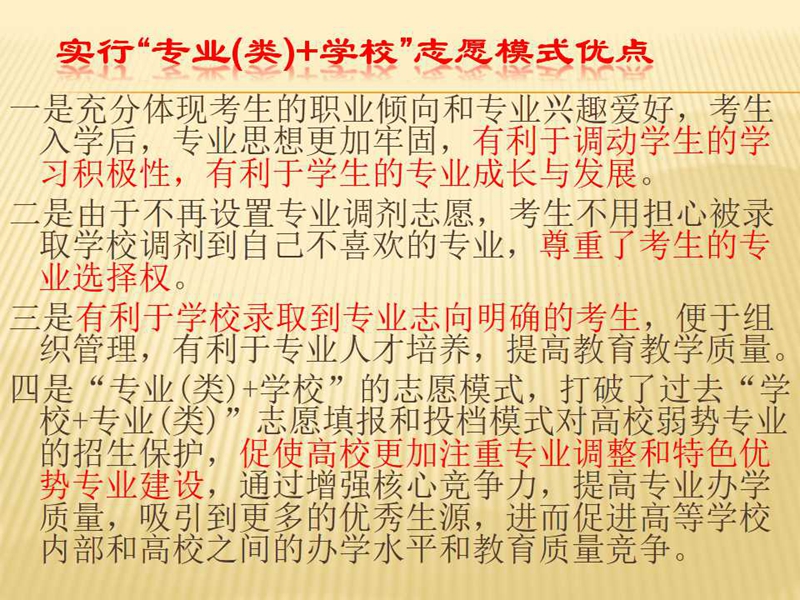 实行“专业(类)+学校”志愿模式优点
一是充分体现考生的职业倾向和专业兴趣爱好，考生
入学后，专业思想更加牢固，有利于调动学生的学
习积极性，有利于学生的专业成长与发展。
二是由于不再设置专业调剂志愿，考生不用担心被录
取学校调剂到自己不喜欢的专业，尊重了考生的专
业选择权。
三是有利于学校录取到专业志向明确的考生，便于组
织管理，有利于专业人才培养，提高教育教学质量。
四是“专业(类)+学校”的志愿模式，打破了过去“学
校+专业(类)”志愿填报和投档模式对高校弱势专业
的招生保护，促使高校更加注重专业调整和特色优
势专业建设，通过增强核心竞争力，提高专业办学
质量，吸引到更多的优秀生源，进而促进高等学校
内部和高校之间的办学水平和教育质量竞争。